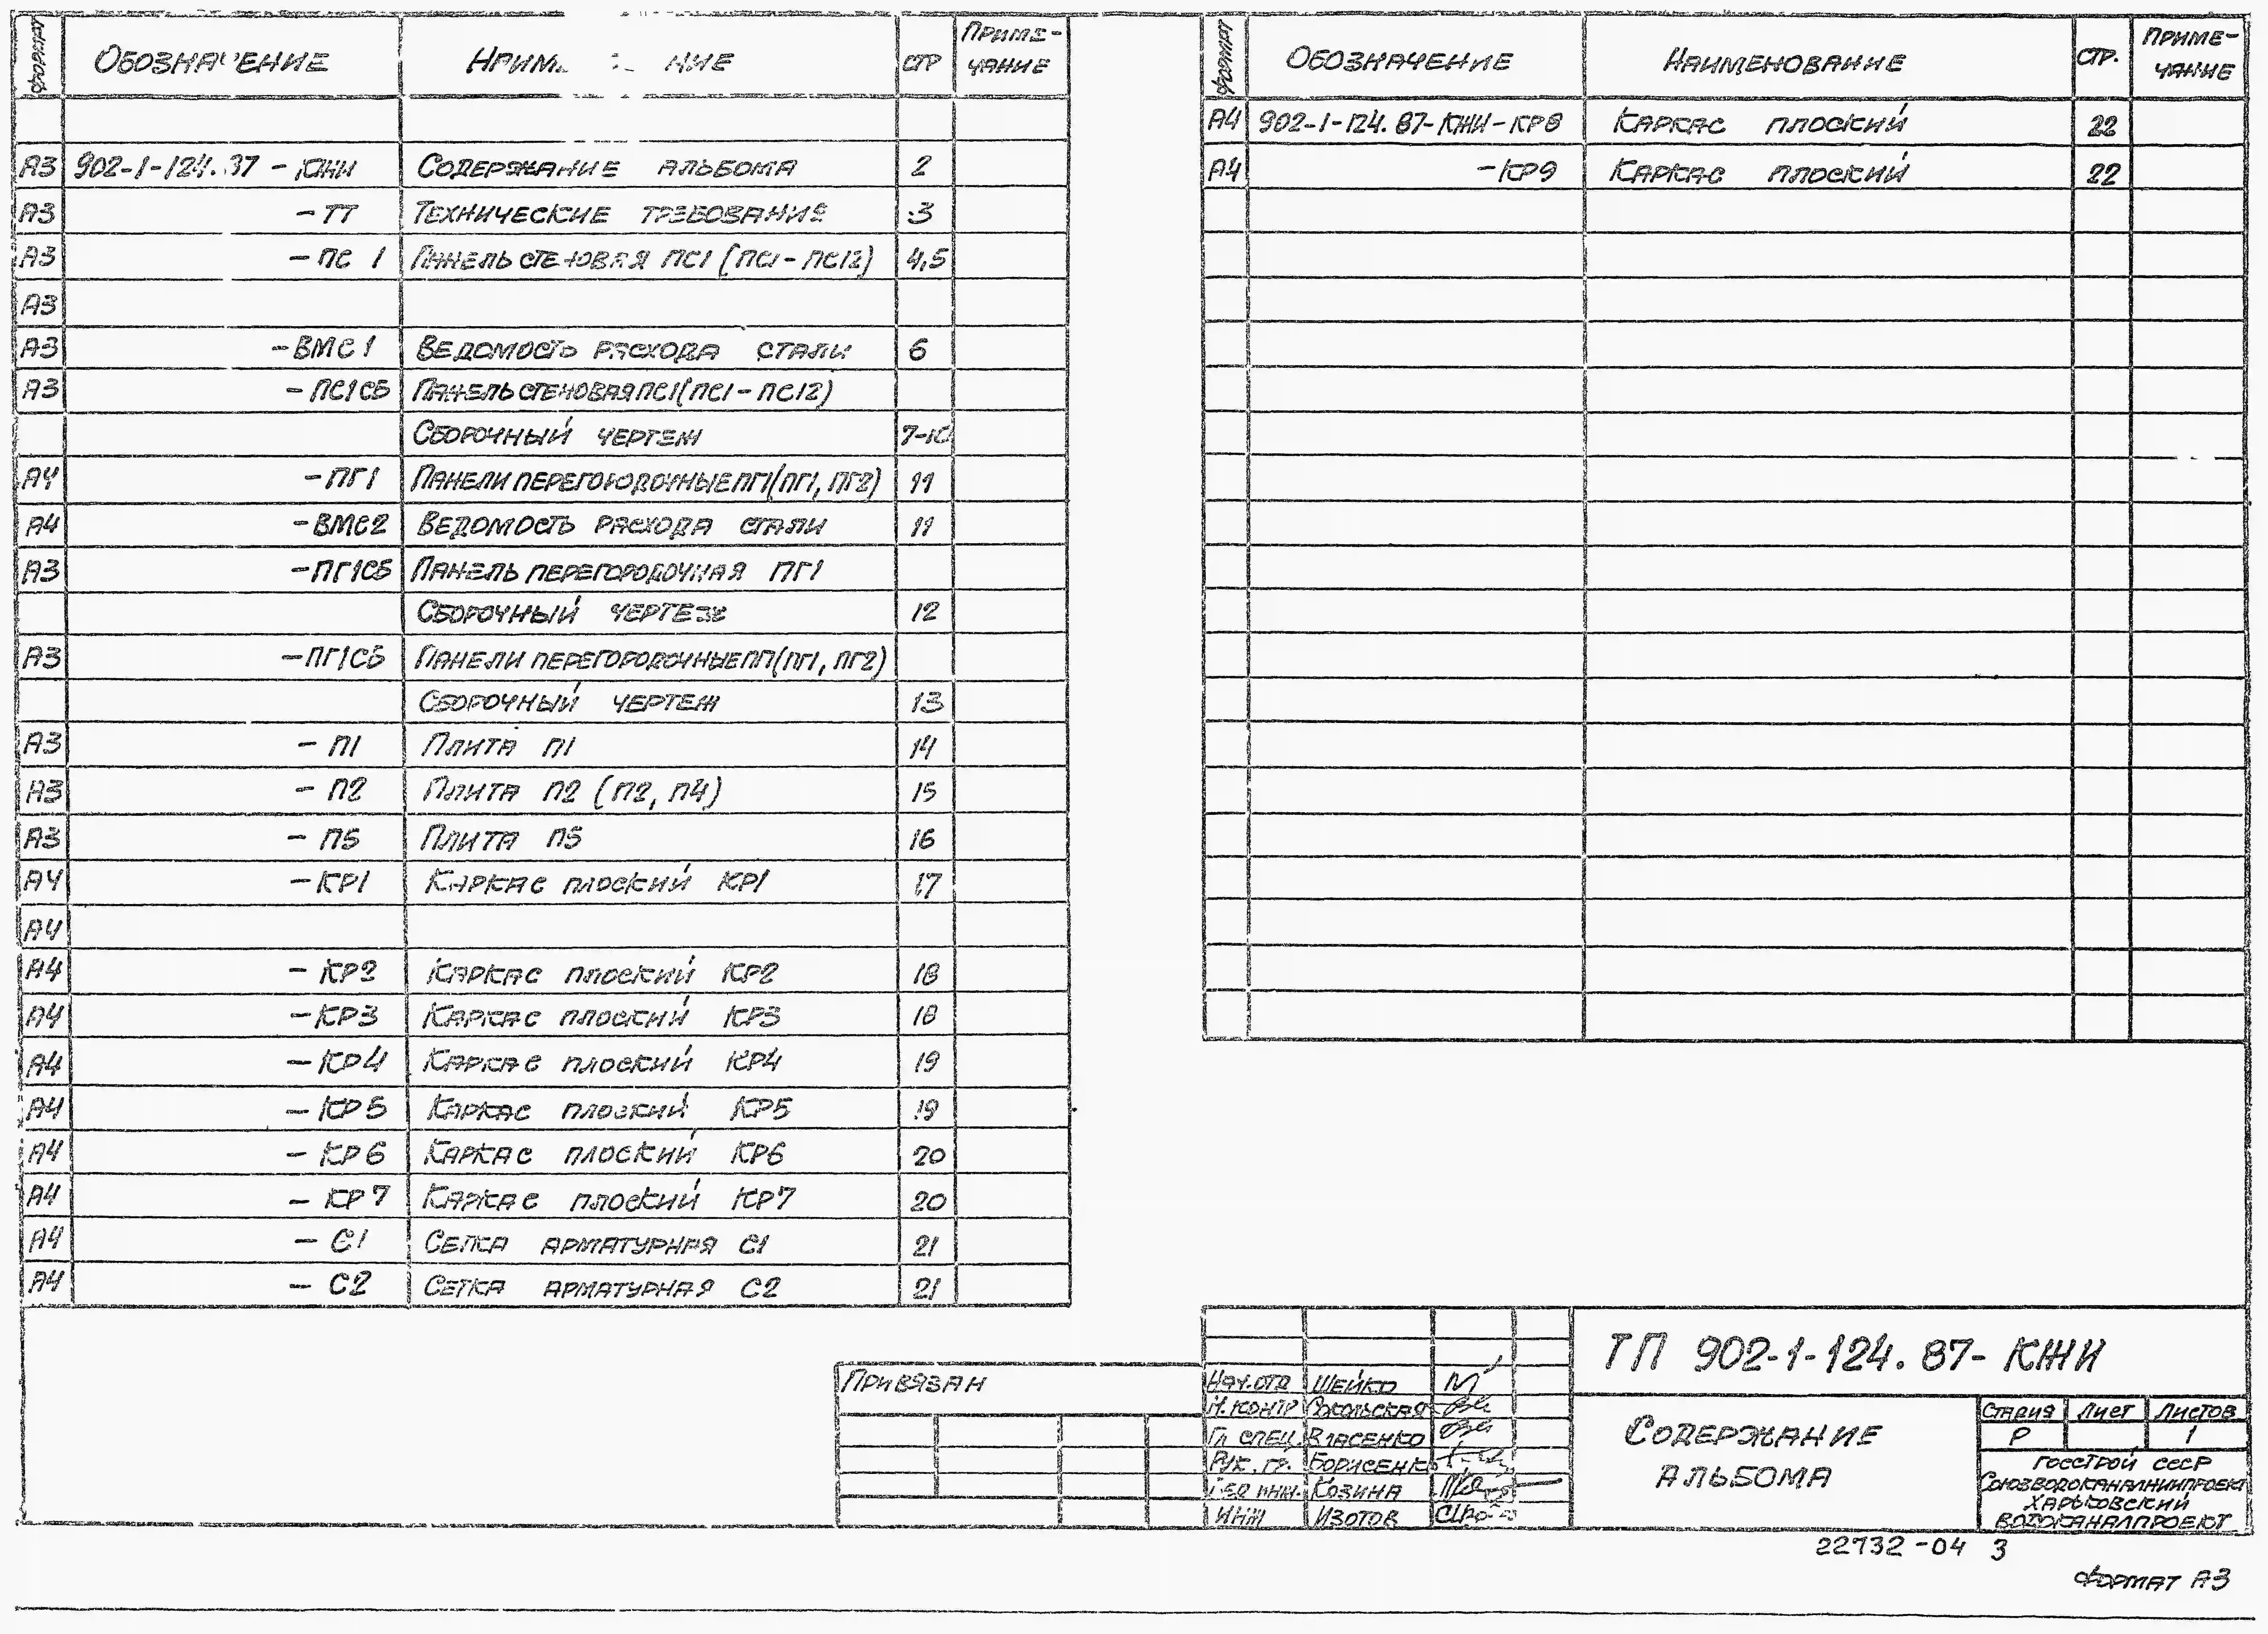 Формат Обозначение Наименование Стр Приме-
чание
А3 902-1-124.87 - КЖИ Содержание альбома 2
А3 - ТТ Технические требования 3
А3 - ПС 1 Панель стеновая ПС1 (ПС1 - ПС12) 4,5
А3
А3 - ВМС1 Ведомость расхода стали 6
А3 - ПС1СБ Панель стеновая ПС1 (ПС1 - ПС12)
Сборочный чертеж 7-10
А4 - ПГ1 Панели перегородочные ПГ1 (ПГ1, ПГ2) 11
А4 - ВМС2 Ведомость расхода стали 11
А3 - ПГ1СБ Панель перегородочная ПГ1
Сборочный чертеж 12
А3 - ПГ1СБ Панели перегородочные ПГ1 (ПГ1, ПГ2)
Сборочный чертеж 13
А3 - П1 Плита П1 14
А3 - П2 Плита П2 (П2, П4) 15
А3 - П5 Плита П5 16
А4 - КР1 Каркас плоский КР1 17
А4
А4 - КР2 Каркас плоский КР2 18
А4 - КР3 Каркас плоский КР3 18
А4 - КР4 Каркас плоский КР4 19
А4 - КР5 Каркас плоский КР5 19
А4 - КР6 Каркас плоский КР6 20
А4 - КР7 Каркас плоский КР7 20
А4 - С1 Сетка арматурная С1 21
А4 - С2 Сетка арматурная С2 21
Формат Обозначение Наименование Стр. Приме-
чание
А4 902-1-124.87-КЖИ-КР8 Каркас плоский 22
А4 -КР9 Каркас плоский 22
Привязан
Нач.отд Шейко
Н.контр Сокольская
Гл спец. Власенко
Рук. гр. Борисенко
Вед инж. Козина
Инж Изотов
ТП 902-1-124.87- КЖИ
Содержание
альбома
Стадия Лист Листов
Р 1
Госстрой СССР
Союзводоканалниипроект
Харьковский
Водоканалпроект
22732-04 3
Формат А3